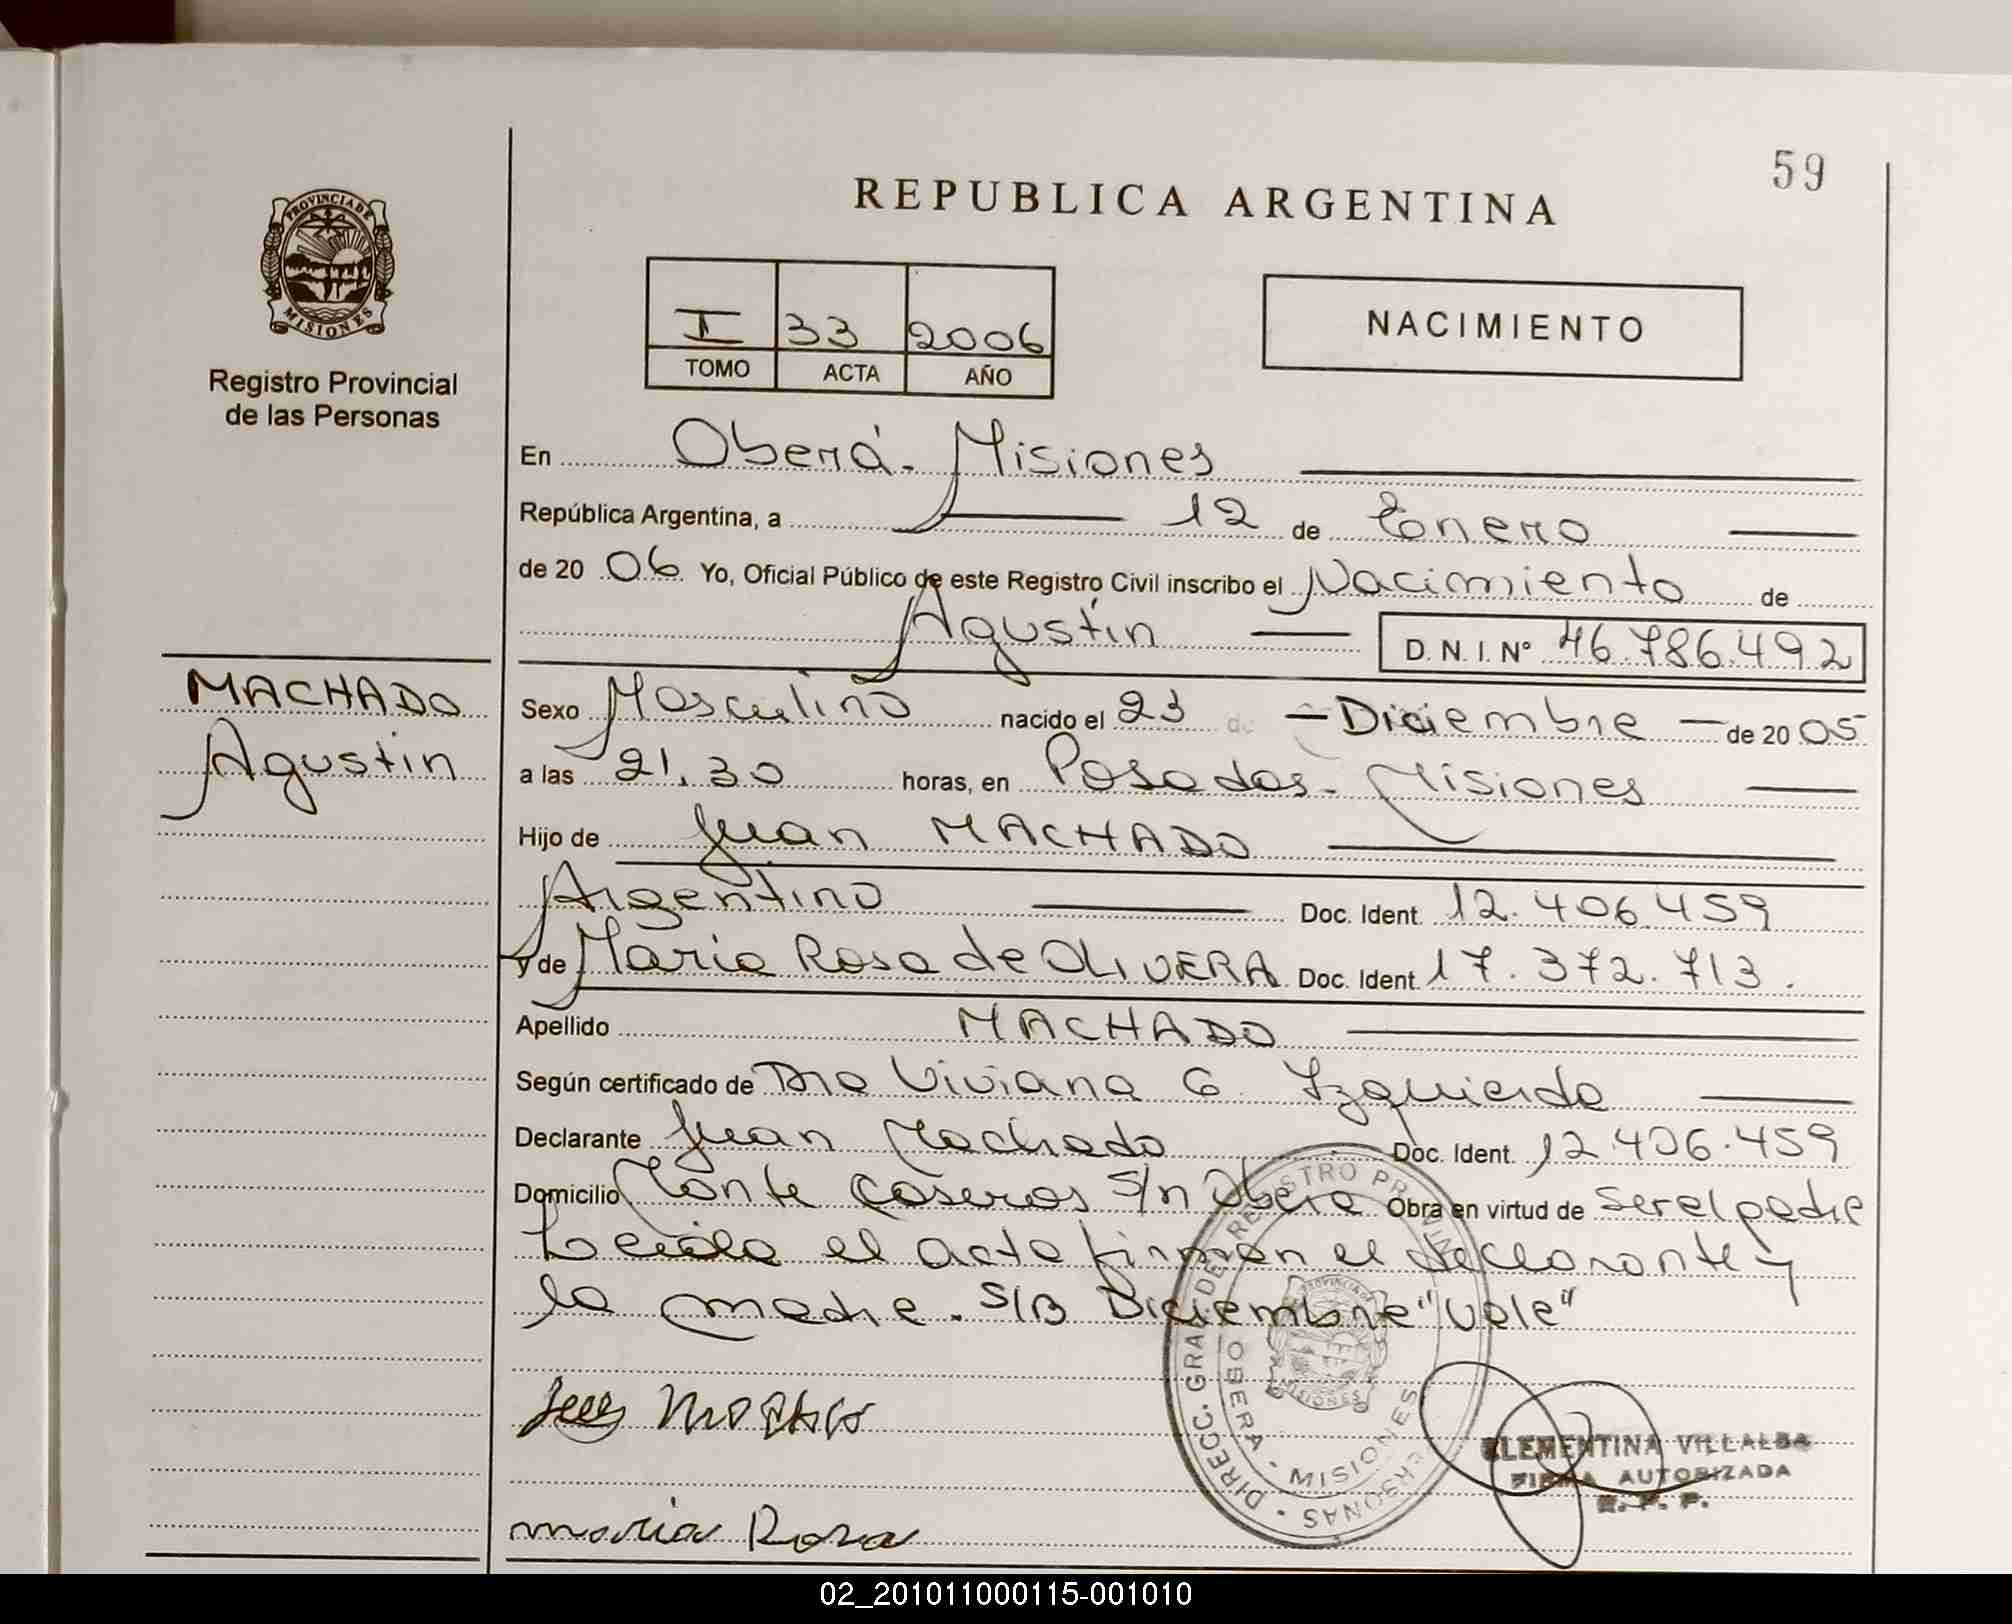 59
REPUBLICA ARGENTINA
PROVINCIA DE
MISIONES
Registro Provincial
de las Personas
I 33 2006
TOMO ACTA AÑO
NACIMIENTO
En Oberá - Misiones
República Argentina, a 12 de Enero
de 20 06 Yo, Oficial Público de este Registro Civil inscribo el Nacimiento de
Agustín D.N.I. N° 46.786.492
MACHADO
Agustin
Sexo Masculino nacido el 23 de Diciembre de 20 05
a las 21.30 horas, en Posadas - Misiones
Hijo de Juan MACHADO
Argentino Doc. Ident. 12.406.459
y de Maria Rosa de OLIVERA Doc. Ident. 17.372.713.
Apellido MACHADO
Según certificado de Dra Viviana G Izquierdo
Declarante Juan Machado Doc. Ident. 12.406.459
Domicilio Monte Caseros s/n Obera Obra en virtud de ser el padre
Leida el acta firman el declarante y
la madre. S/B Diciembre "Vale"
DIRECC. GRAL DEL REGISTRO PROVIN PERSONAS
OBERA - MISIONES
PROVINCIA DE
MISIONES
CLEMENTINA VILLALBA
FIRMA AUTORIZADA
R. P. P.
maria Rosa
02_201011000115-001010